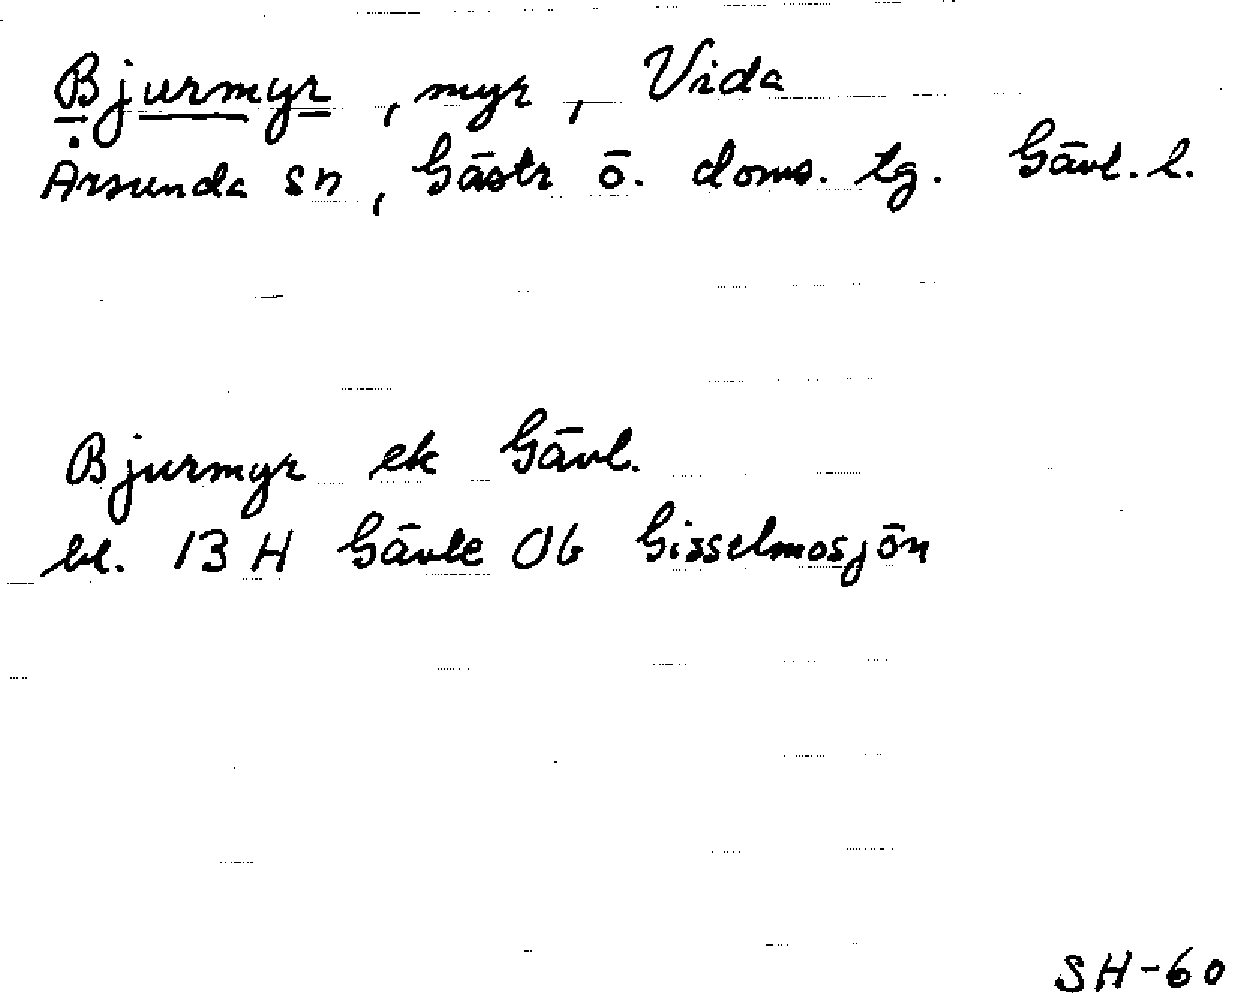 Bjurmyr, myr, Vida
Årsunda sn, Gästr ö. doms. tg. Gävl. l.
Bjurmyr ek Gävl.
bl. 13 H Gävle 0b Gisselmosjön
SH-60